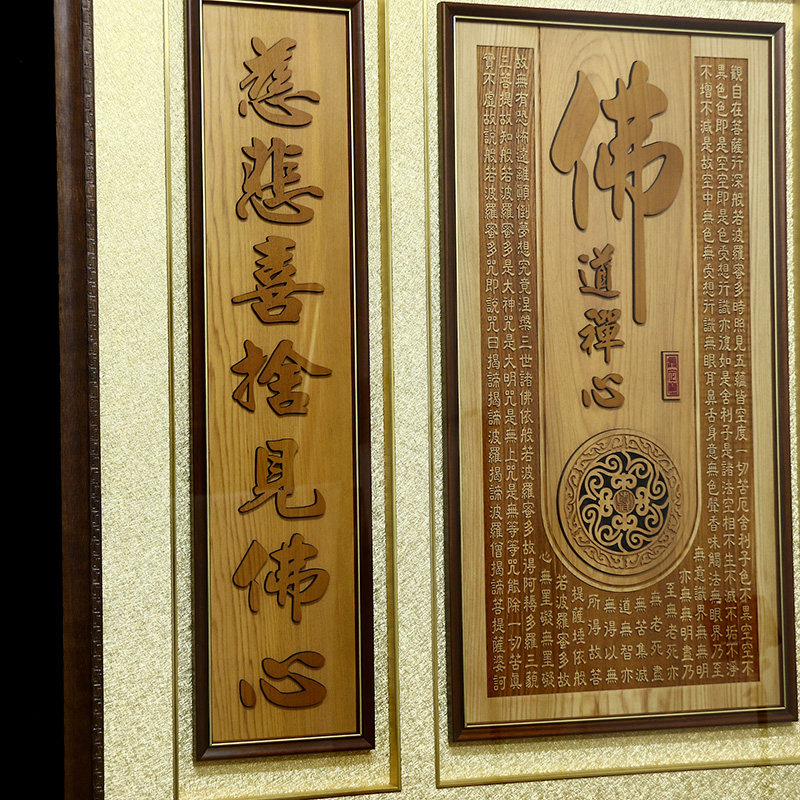 觀自在菩薩行深般若波羅蜜多時照見五蘊皆空度一切苦厄舍利子色不異空空不
異色色即是空空即是色受想行識亦復如是舍利子是諸法空相不生不滅不垢不淨
不增不減是故空中無色無受想行識無眼耳鼻舌身意無色聲香味觸法無眼界乃至
無意識界無無明
亦無無明盡乃
至無老死亦
無老死盡
無苦集滅
道無智亦
無得以無
所得故菩
提薩埵依般
若波羅蜜多故
心無罣礙無罣礙
故無有恐怖遠離顛倒夢想究竟涅槃三世諸佛依般若波羅蜜多故得阿耨多羅三藐
三菩提故知般若波羅蜜多是大神咒是大明咒是無上咒是無等等咒能除一切苦眞
實不虛故說般若波羅蜜多咒即說咒曰揭諦揭諦波羅揭諦波羅僧揭諦菩提薩婆訶
佛
道禪心
慈悲喜捨見佛心